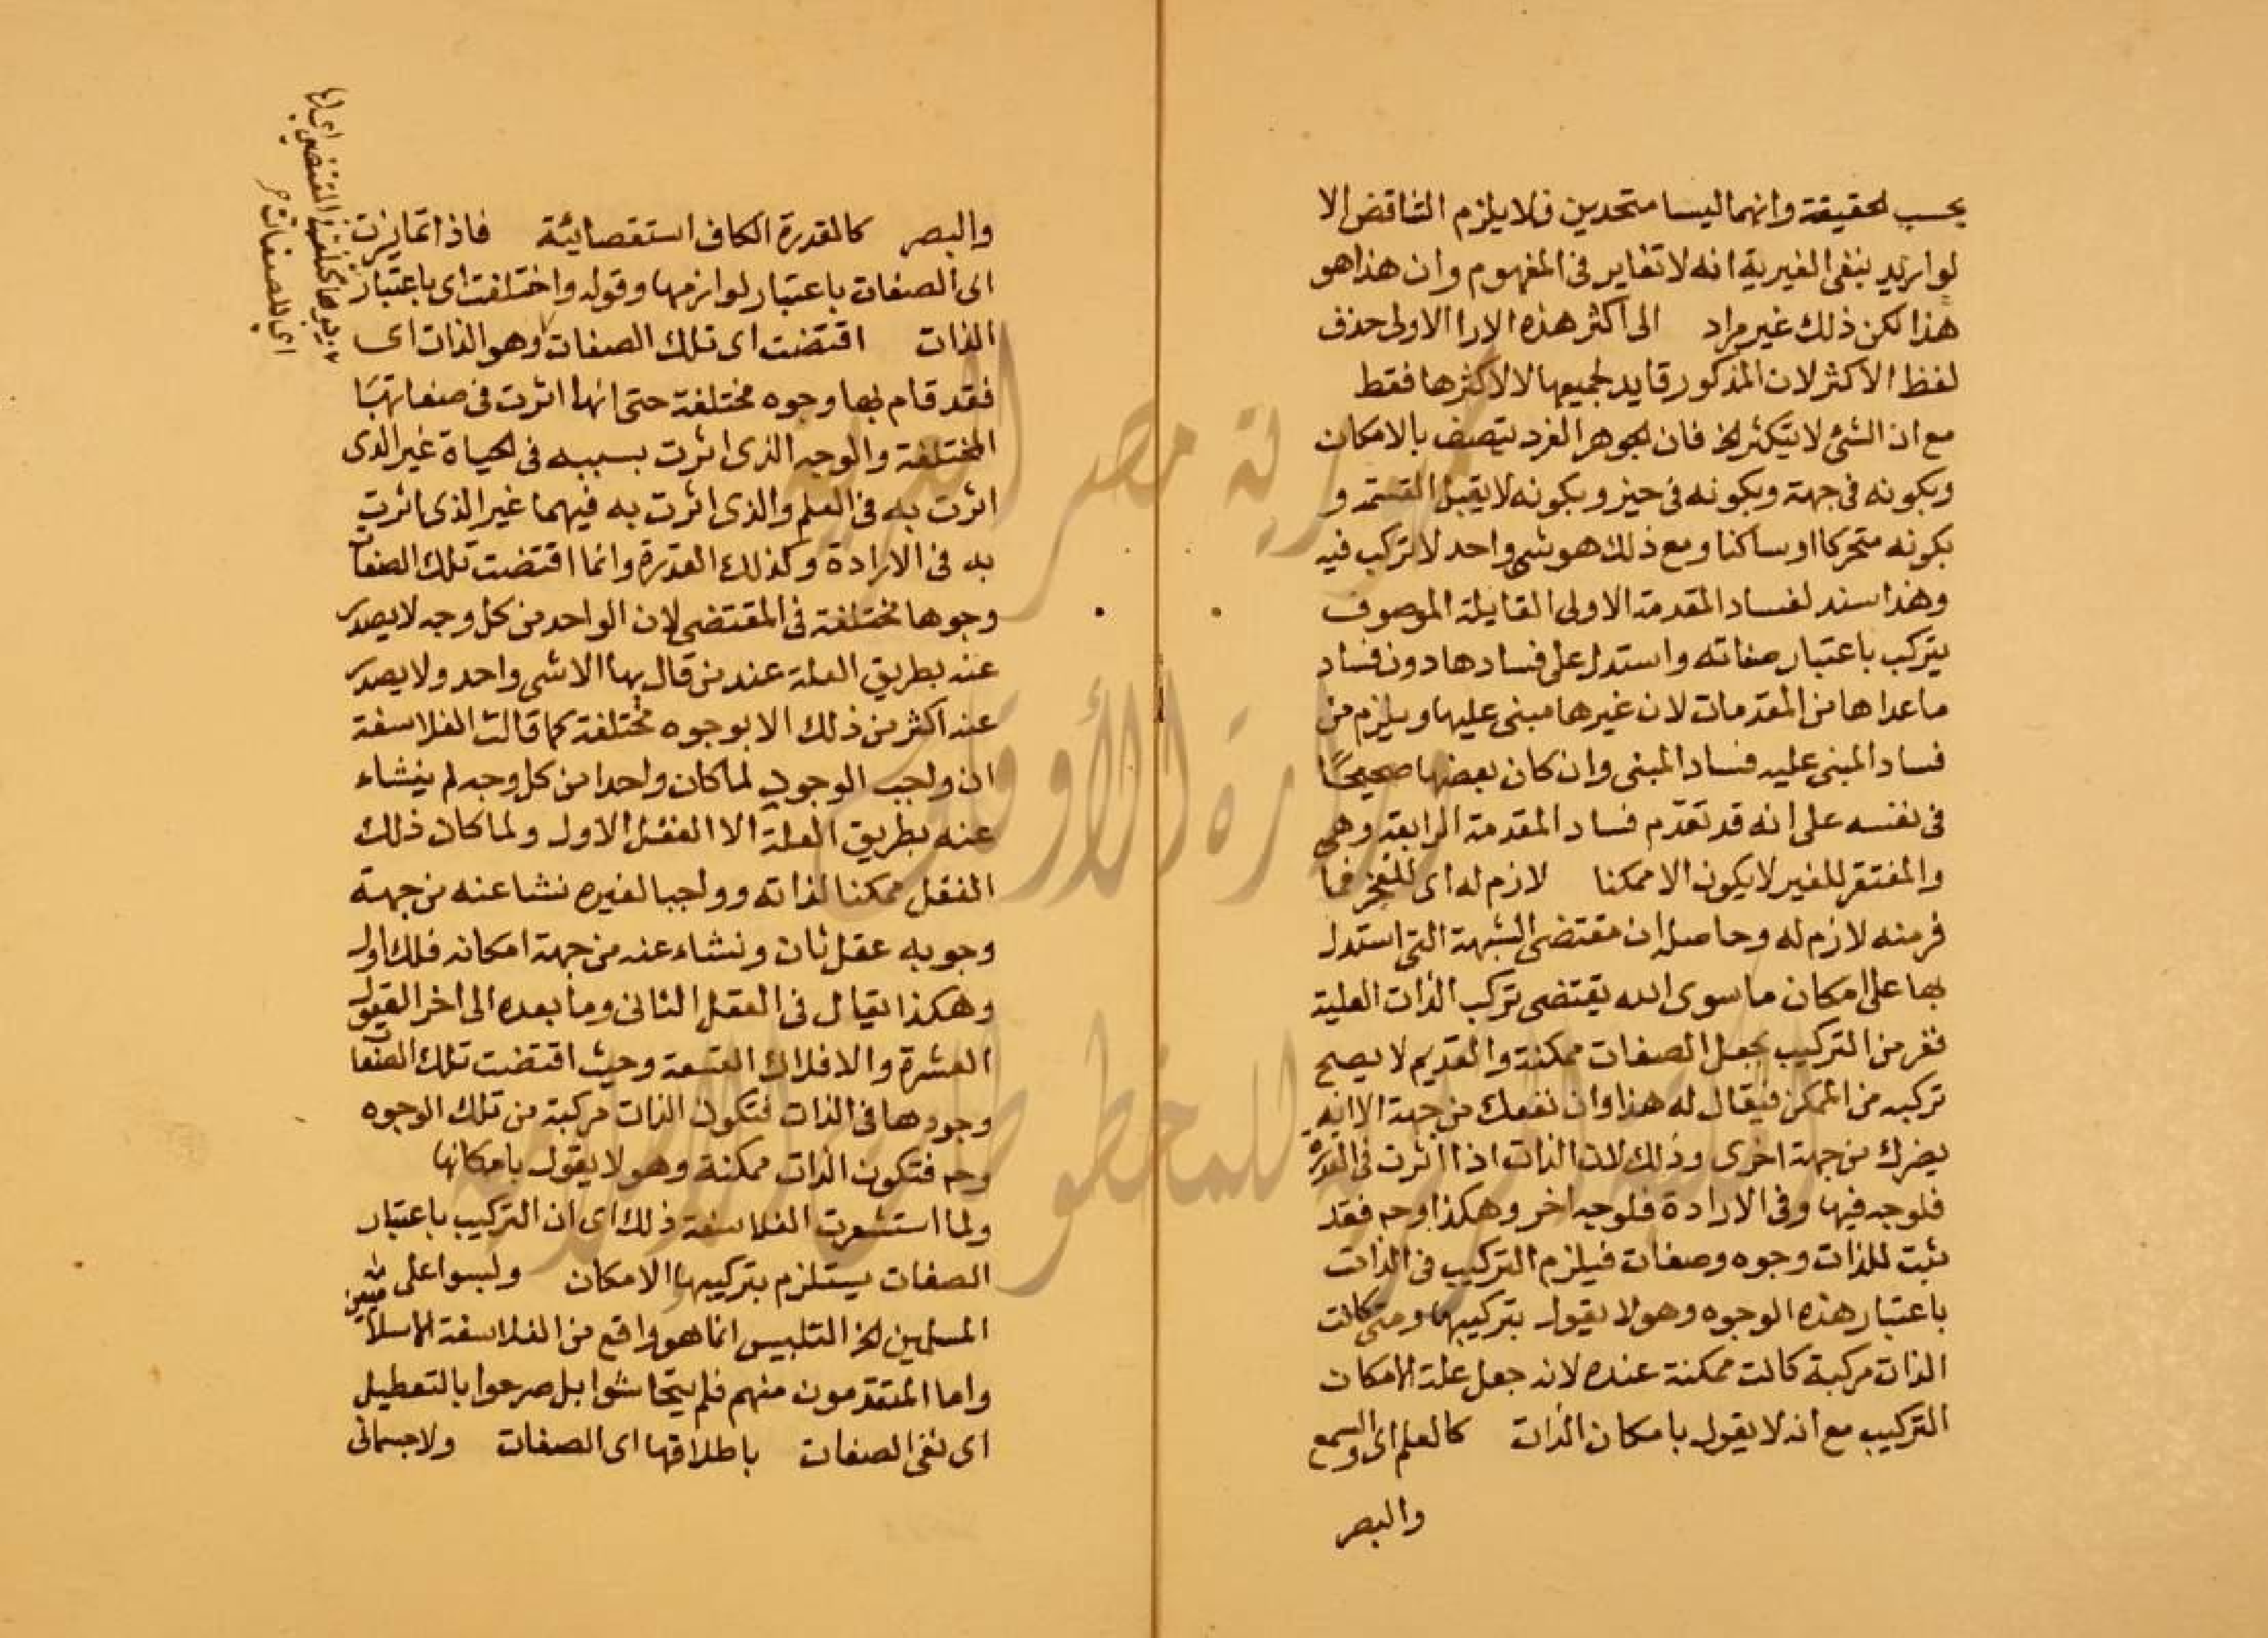 بحسب الحقيقة وانهما ليسا متحدين فلا يلزم التناقض الا
لو اريد بنفى الغيرية انه لا تغاير فى المفهوم وان هذا هو
هذا لكن ذلك غير مراد الى اكثر هذه الارا الاولى حذف
لفظ الاكثر لان المذكور قايد لجميعها لا لاكثرها فقط
مع ان الشئ لا يتكثر الخ فان الجوهر الفرد يتصف بالامكان
وبكونه فى جهة وبكونه فى حيز وبكونه لا يقبل القسمة و
بكونه متحركا او ساكنا ومع ذلك هو شى واحد لا تركب فيه
وهذا سند لفساد المقدمة الاولى القايلة الموصوف
يتركب باعتبار صفاته واستدل على فسادها دون فساد
ما عداها من المقدمات لان غيرها مبنى عليها ويلزم من
فساد المبنى عليه فساد المبنى وان كان بعضها صحيحًا
فى نفسه على انه قد تقدّم فساد المقدمة الرابعة وهى
والمفتقر للغير لا يكون الا ممكنا لازم له اى للفخر فما
فر منه لازم له وحاصله ان مقتضى الشبهة التى استدل
بها على امكان ما سوى الله يقتضى تركب الذات العلية
ففر من التركيب بجعل الصفات ممكنة والقديم لا يصح
تركبه من الممكن فيقال له هذا وان نفعك من جهة الا انه
يضرك من جهة اخرى وذلك لان الذات اذا اثرت فى القدرة
فلوجه فيها وفى الارادة فلوجه اخر وهكذا وحـ فقد
ثبت للذات وجوه وصفات فيلزم التركيب فى الذات
باعتبار هذه الوجوه وهو لا يقول بتركيبها ومتى كانت
الذات مركبة كانت ممكنة عنده لانه جعل علة الامكان
التركيب مع انه لا يقول بامكان الذات كالعلم اى والسمع
والبصر
والبصر كالقدرة الكاف استقصائية فاذا تمايزت
اى الصفات باعتبار لوازمها وقوله واختلفت اى باعتبار
الذات اقتضت اى تلك الصفات وهو الذات اى
فقد قام بها وجوه مختلفة حتى انها اثرت فى صفاتها
المختلفة والوجه الذى اثرت بسببه فى الحياة غير الذى
اثرت به فى العلم والذى اثرت به فيهما غير الذى اثرت
به فى الارادة وكذلك القدرة وانما اقتضت تلك الصفات
وجوها مختلفة فى المقتضى لان الواحد من كل وجه لا يصدر
عنه بطريق العلة عند من قال بها الا شى واحد ولا يصدر
عنه اكثر من ذلك الا بوجوه مختلفة كما قالت الفلاسفة
ان واجب الوجود لما كان واحدا من كل وجه لم ينشاء
عنه بطريق العلة الا العقل الاول ولما كان ذلك
العقل ممكنا لذاته وواجبا لغيره نشا عنه من جهة
وجوبه عقل ثان ونشاء عنه من جهة امكانه فلك اول
وهكذا يقال فى العقل الثانى وما بعده الى اخر العقول
العشرة والافلاك التسعة وحيث اقتضت تلك الصفات
وجودها فى الذات فتكون الذات مركبة من تلك الوجوه
وحـ فتكون الذات ممكنة وهو لا يقول بامكانها
ولما استشعرت الفلاسفة ذلك اى ان التركيب باعتبار
الصفات يستلزم بتركيبها الامكان ولبسوا على
المسلمين الخ التلبيس انما هو واقع من الفلاسفة الاسلاميين
واما المتقدمون منهم فلم يتحاشوا بل صرحوا بالتعطيل
اى نفى الصفات باطلاقها اى الصفات ولا جسمانى
وجوها مختلفة فى المقتضى اى لها
اى للصفات